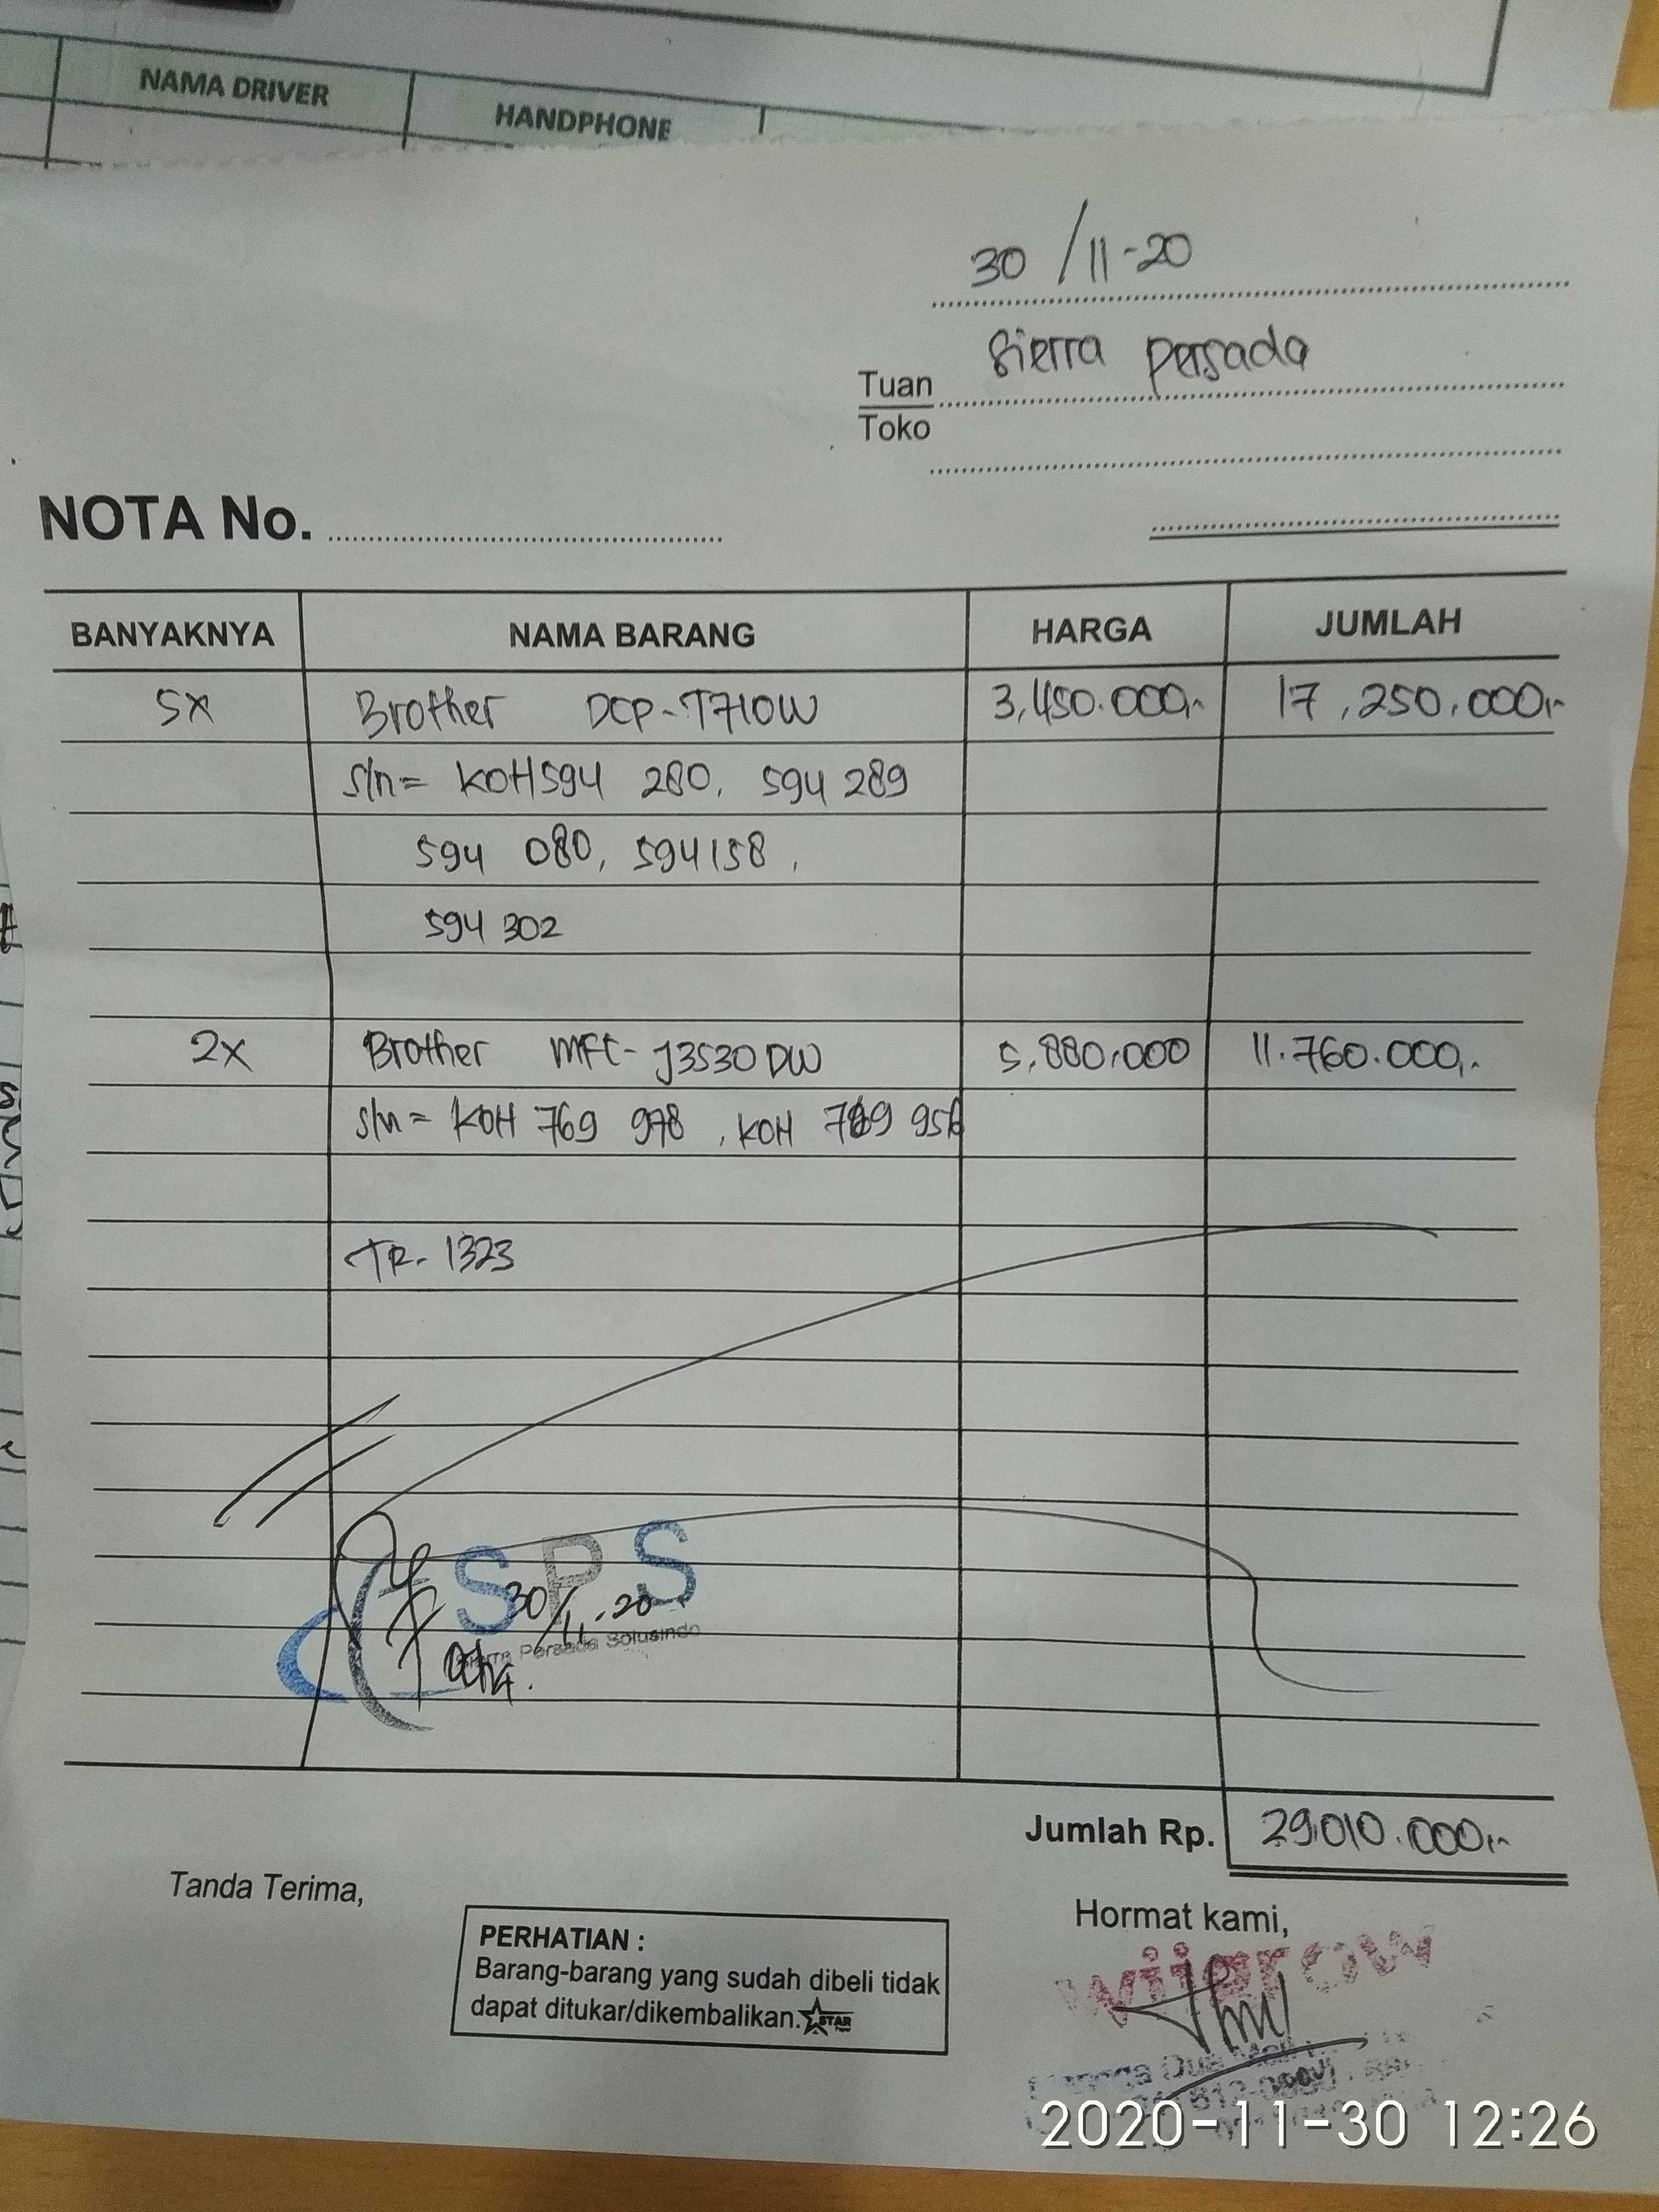 NAMA DRIVER HANDPHONE
30 / 11-20
Tuan Sierra Persada
Toko
NOTA No.
BANYAKNYA NAMA BARANG HARGA JUMLAH
5x Brother DCP-T710W 3,450.000,- 17,250.000,-
S/n= KOH594 280, 594 289
594 080, 594158,
594 302
2x Brother MFC-J3530DW 5.880.000 11.760.000,-
S/n= KOH 769 978, KOH 769
TR-1323
SPS
30/11-20
Sierra Persada Solusindo
Jumlah Rp. 29.010.000,-
Tanda Terima,
Hormat kami,
PERHATIAN :
Barang-barang yang sudah dibeli tidak
dapat ditukar/dikembalikan. STAR
wijgrow
Mangga Dua Mall
2020-11-30 12:26